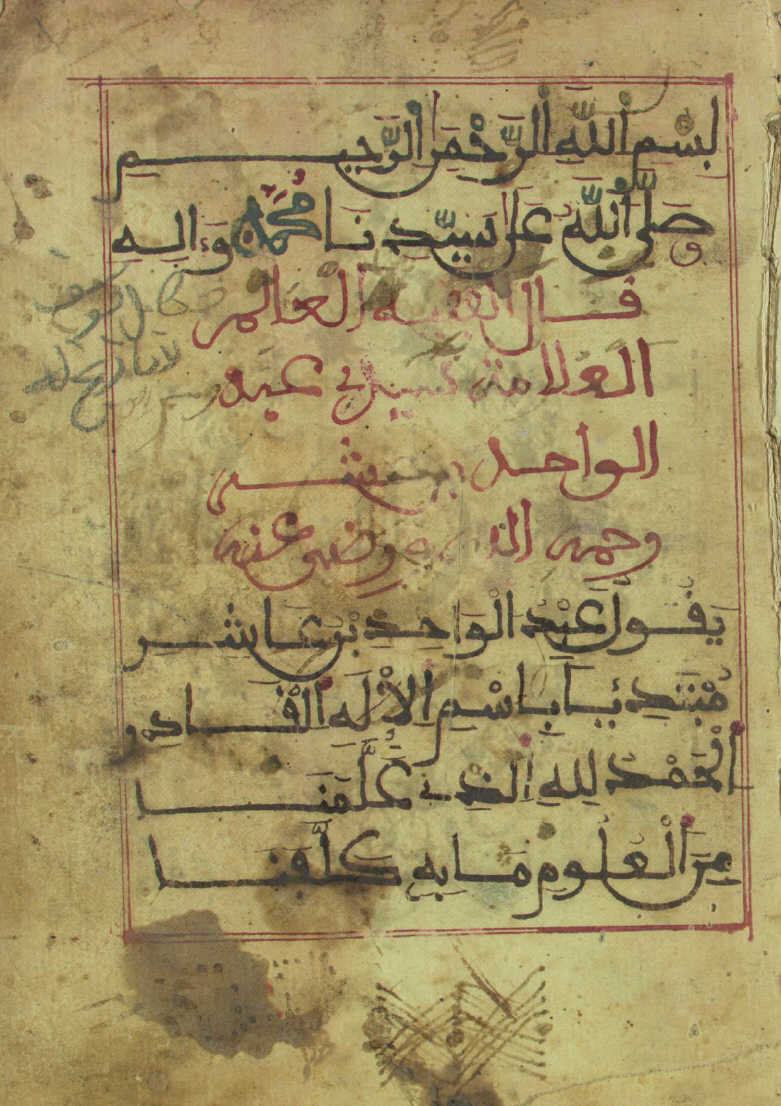 بِسْمِ اللَّهِ الرَّحْمَنِ الرَّحِيمِ
صَلَّى اللَّهُ عَلَى سَيِّدِنَا مُحَمَّدٍ وَءَالِهِ
قال الفقيه العالم
العلامة سيدي عبد
الواحد بن عاشر
رحمه الله ورضي عنه
يَقُولُ عَبْدُ الْوَاحِدِ بْنُ عَاشِرِ
مُبْتَدِئًا بِاسْمِ الْإِلَهِ الْقَادِرِ
الْحَمْدُ لِلَّهِ الَّذِي عَلَّمَنَا
مِنَ الْعُلُومِ مَا بِهِ كَلَّفَنَا